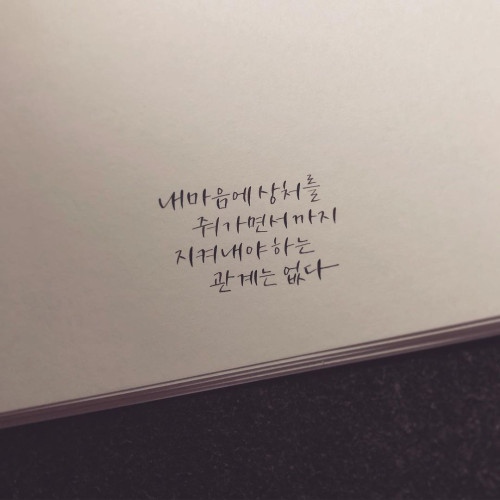 내마음에 상처를
줘가면서까지
지켜내야하는
관계는 없다